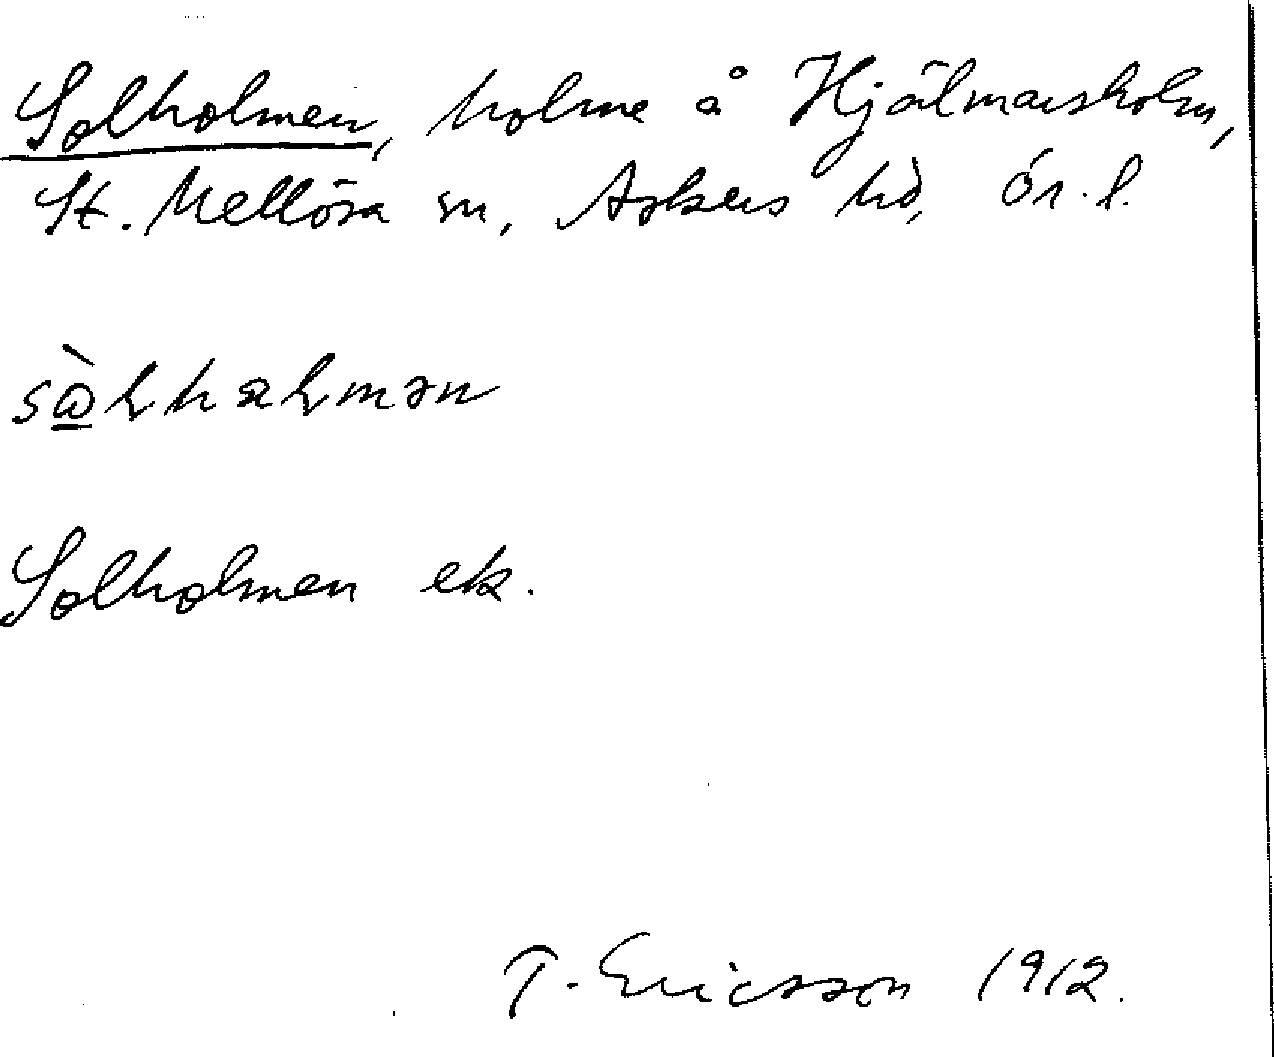 Solholmen, holme å Hjälmarsholm,
St. Mellösa sn, Askers hd, Ör. l.
Solholmen ek.
T. Ericsson 1912.